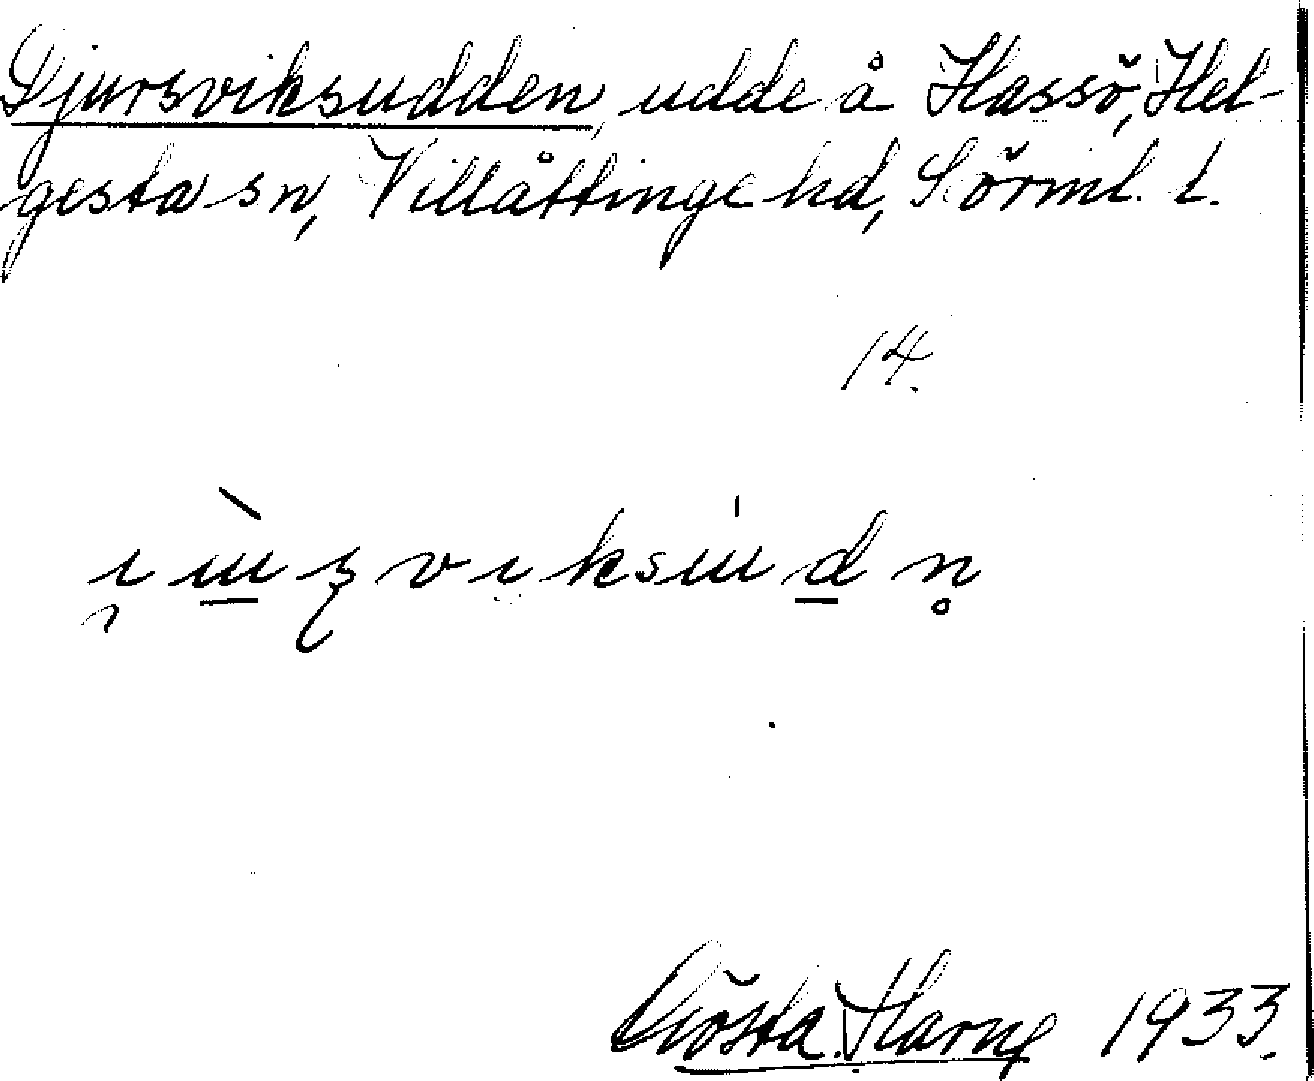 Djursviksudden, udde å Hassö, Hel-
gesta sn, Villåttinge hd, Sörml. l.
14.
Gösta Harng 1933.